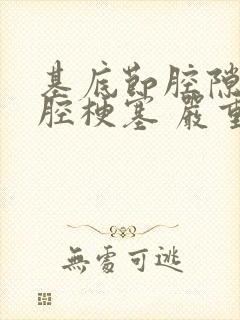 基底節腔隙
腔梗塞 嚴重
無處可逃